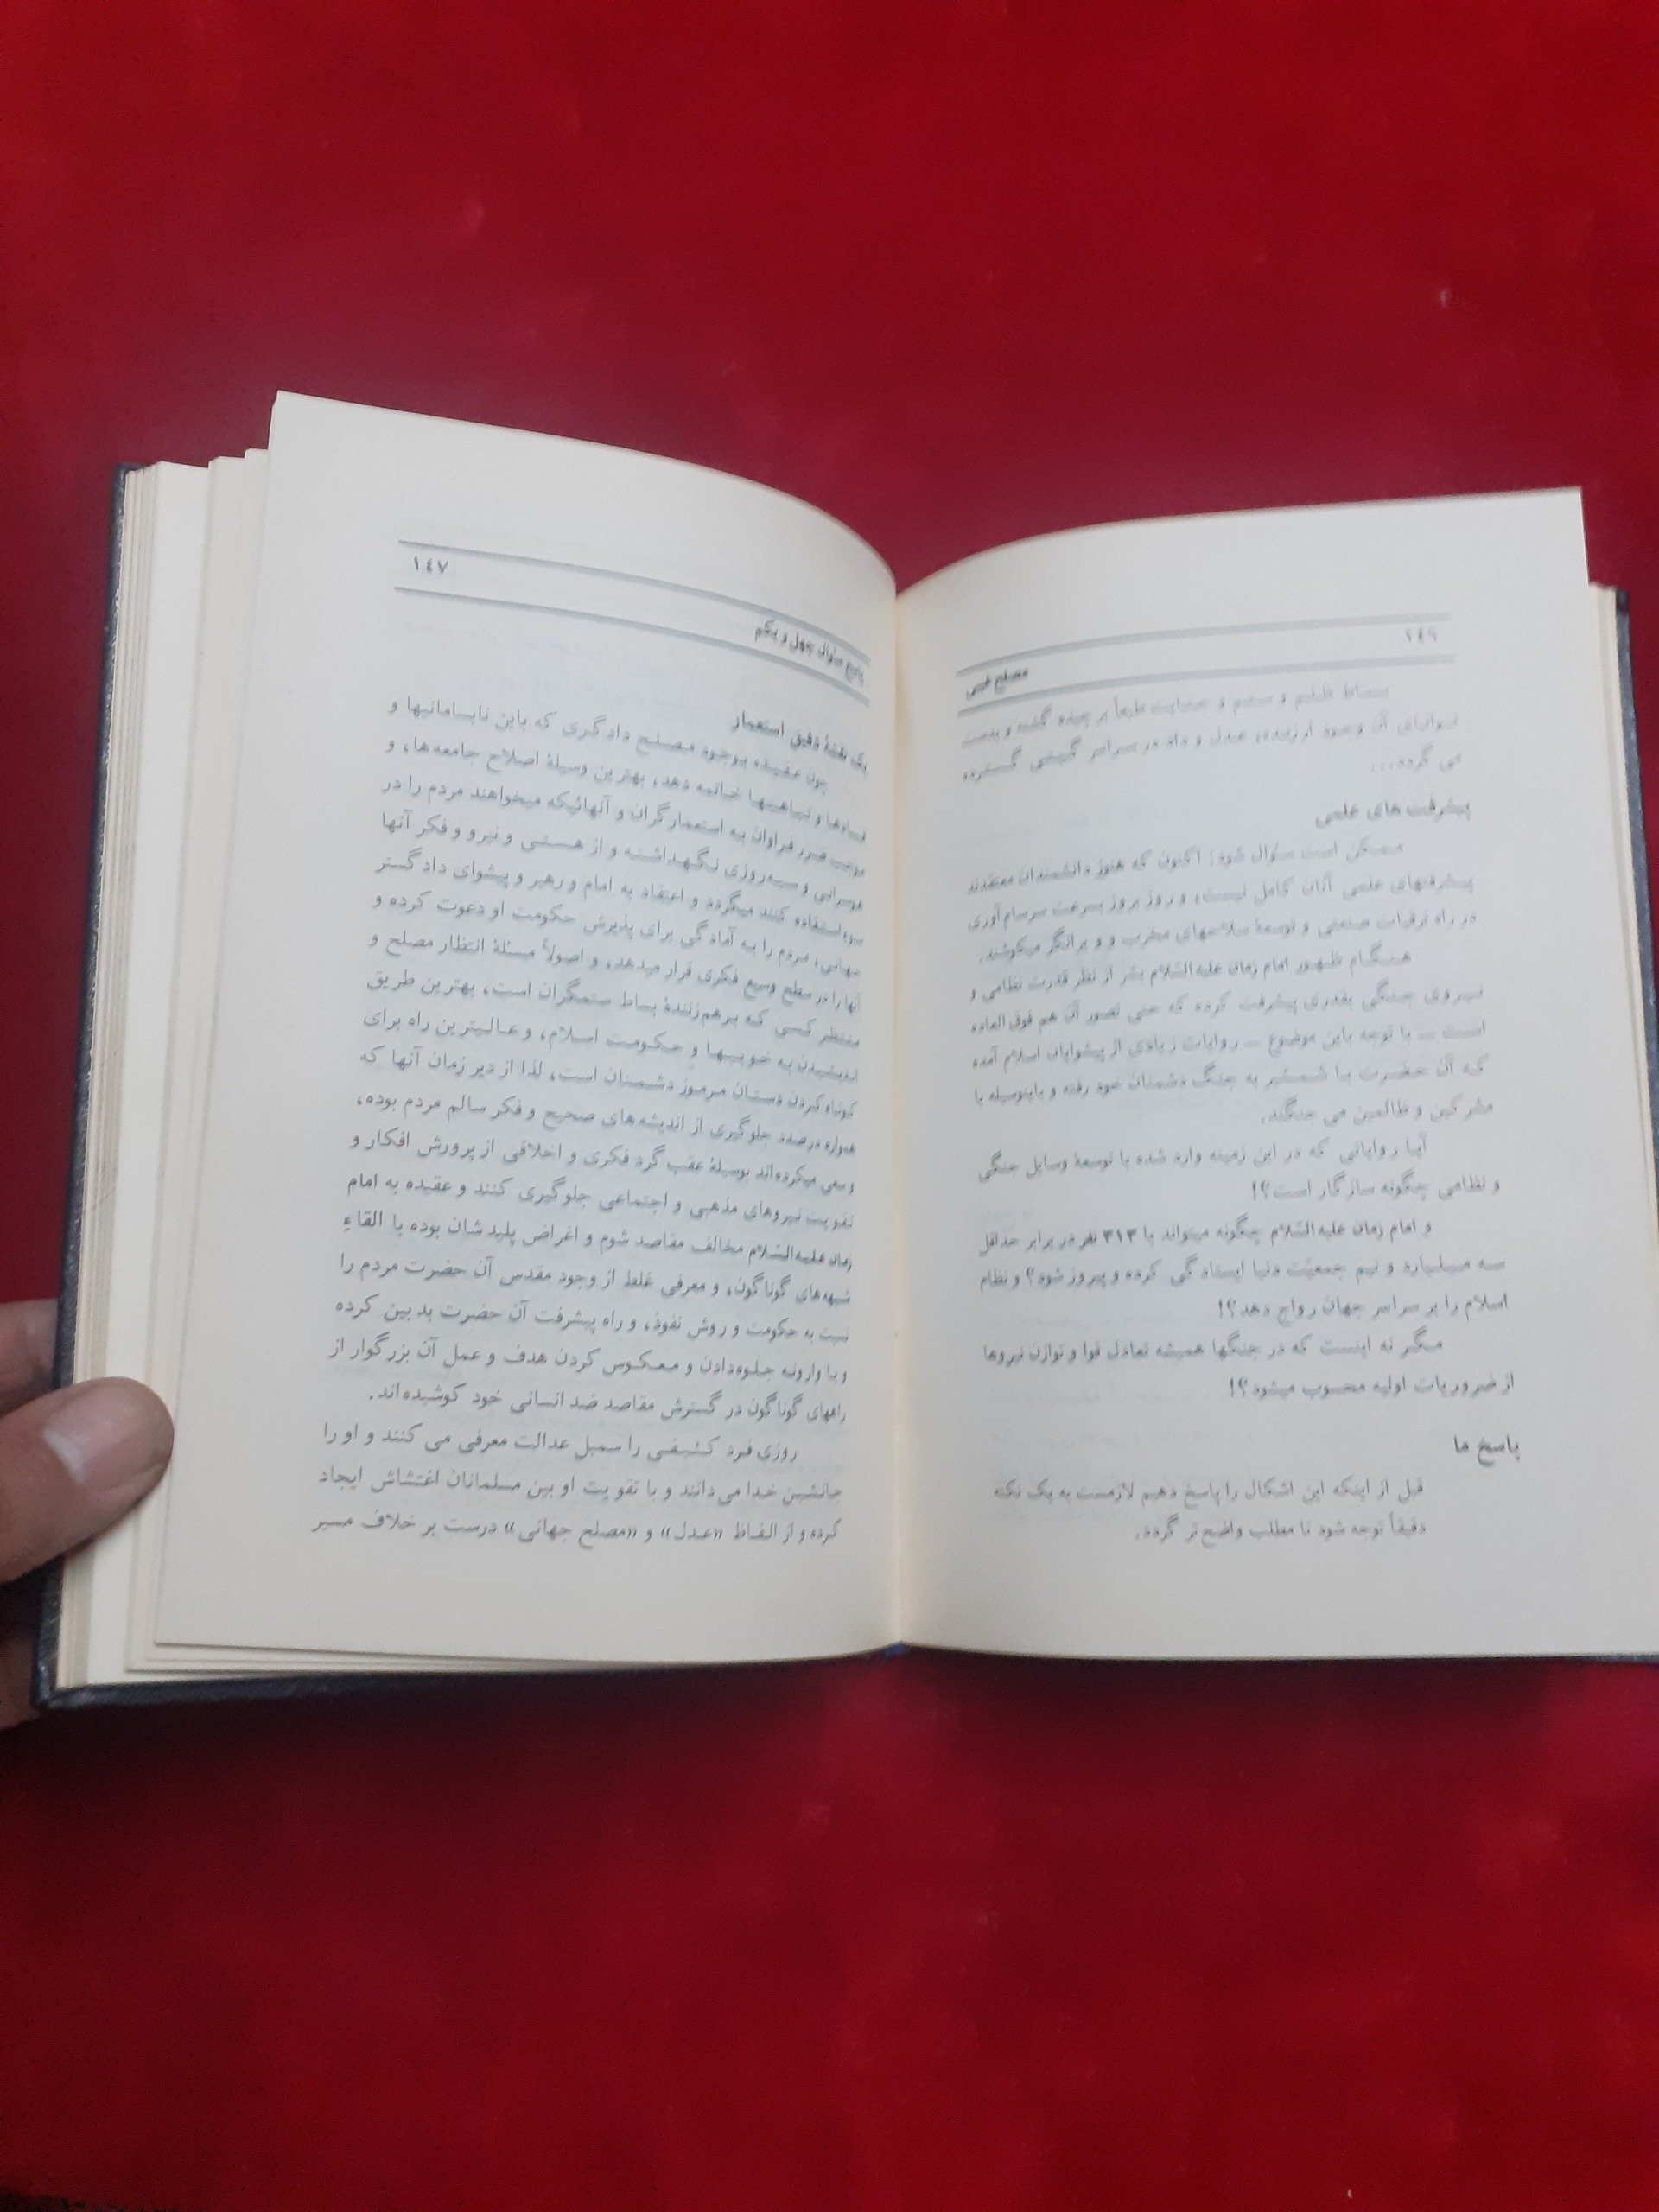 ۱٤٦
مصلح غیبی
بساط ظلم و ستم و جنایت طبعاً برچیده گشته و بدست
توانای آن وجود ارزنده، عدل و داد در سراسر گیتی گسترده
می گردد...
پیشرفت های علمی
ممکن است سؤال شود: اکنون که هنوز دانشمندان معتقدند
پیشرفتهای علمی آنان کامل نیست، و روز بروز بسرعت سرسام آوری
در راه ترقیات صنعتی و توسعهٔ سلاحهای مخرب و ویرانگر میکوشند.
هنگام ظهور امام زمان علیه‌السّلام بشر از نظر قدرت نظامی و
نیروی جنگی بقدری پیشرفت کرده که حتی تصور آن هم فوق العاده
است — با توجه باین موضوع — روایات زیادی از پیشوایان اسلام آمده
که آن حضرت با شمشیر به جنگ دشمنان خود رفته و باینوسیله با
مشرکین و ظالمین می جنگند.
آیا روایاتی که در این زمینه وارد شده با توسعهٔ وسایل جنگی
و نظامی چگونه سازگار است؟!
و امام زمان علیه‌السّلام چگونه میتواند با ۳۱۳ نفر در برابر حداقل
سه میلیارد و نیم جمعیّت دنیا ایستادگی کرده و پیروز شود؟ و نظام
اسلام را بر سراسر جهان رواج دهد؟!
مگر نه اینست که در جنگها همیشه تعادل قوا و توازن نیروها
از ضروریات اولیه محسوب میشود؟!
پاسخ ما
قبل از اینکه این اشکال را پاسخ دهیم لازمست به یک نکته
دقیقاً توجه شود تا مطلب واضح تر گردد.
۱٤۷
پاسخ سؤال چهل و یکم
یک نقشهٔ دقیق استعمار
چون عقیده بوجود مصلح دادگری که باین نابسامانیها و
فسادها و تباهیها خاتمه دهد، بهترین وسیلهٔ اصلاح جامعه‌ها، و
موجب ضرر فراوان به استعمارگران و آنهائیکه میخواهند مردم را در
هوسرانی و سیه‌روزی نگهداشته و از هستی و نیرو و فکر آنها
سوءاستفاده کنند میگردد و اعتقاد به امام و رهبر و پیشوای دادگستر
جهانی، مردم را به آمادگی برای پذیرش حکومت او دعوت کرده و
آنها را در سطح وسیع فکری قرار میدهد، و اصولاً مسئلهٔ انتظار مصلح و
منتظر کسی که برهم‌زنندهٔ بساط ستمگران است، بهترین طریق
اندیشیدن به خوبیها و حکومت اسلام، و عالیترین راه برای
کوتاه کردن دستان مرموز دشمنان است، لذا از دیر زمان آنها که
همواره درصدد جلوگیری از اندیشه‌های صحیح و فکر سالم مردم بوده،
و سعی میکرده‌اند بوسیلهٔ عقب گرد فکری و اخلاقی از پرورش افکار و
تقویت نیروهای مذهبی و اجتماعی جلوگیری کنند و عقیده به امام
زمان علیه‌السّلام مخالف مقاصد شوم و اغراض پلیدشان بوده با القاءِ
شبهه‌های گوناگون، و معرفی غلط از وجود مقدس آن حضرت مردم را
نسبت به حکومت و روش نفوذ، و راه پیشرفت آن حضرت بدبین کرده
و با وارونه جلوه‌دادن و معکوس کردن هدف و عمل آن بزرگوار از
راههای گوناگون در گسترش مقاصد ضد انسانی خود کوشیده‌اند.
روزی فرد کثیفی را سمبل عدالت معرفی می کنند و او را
جانشین خدا می‌دانند و با تقویت او بین مسلمانان اغتشاش ایجاد
کرده و از الفاظ «عدل» و «مصلح جهانی» درست بر خلاف مسیر